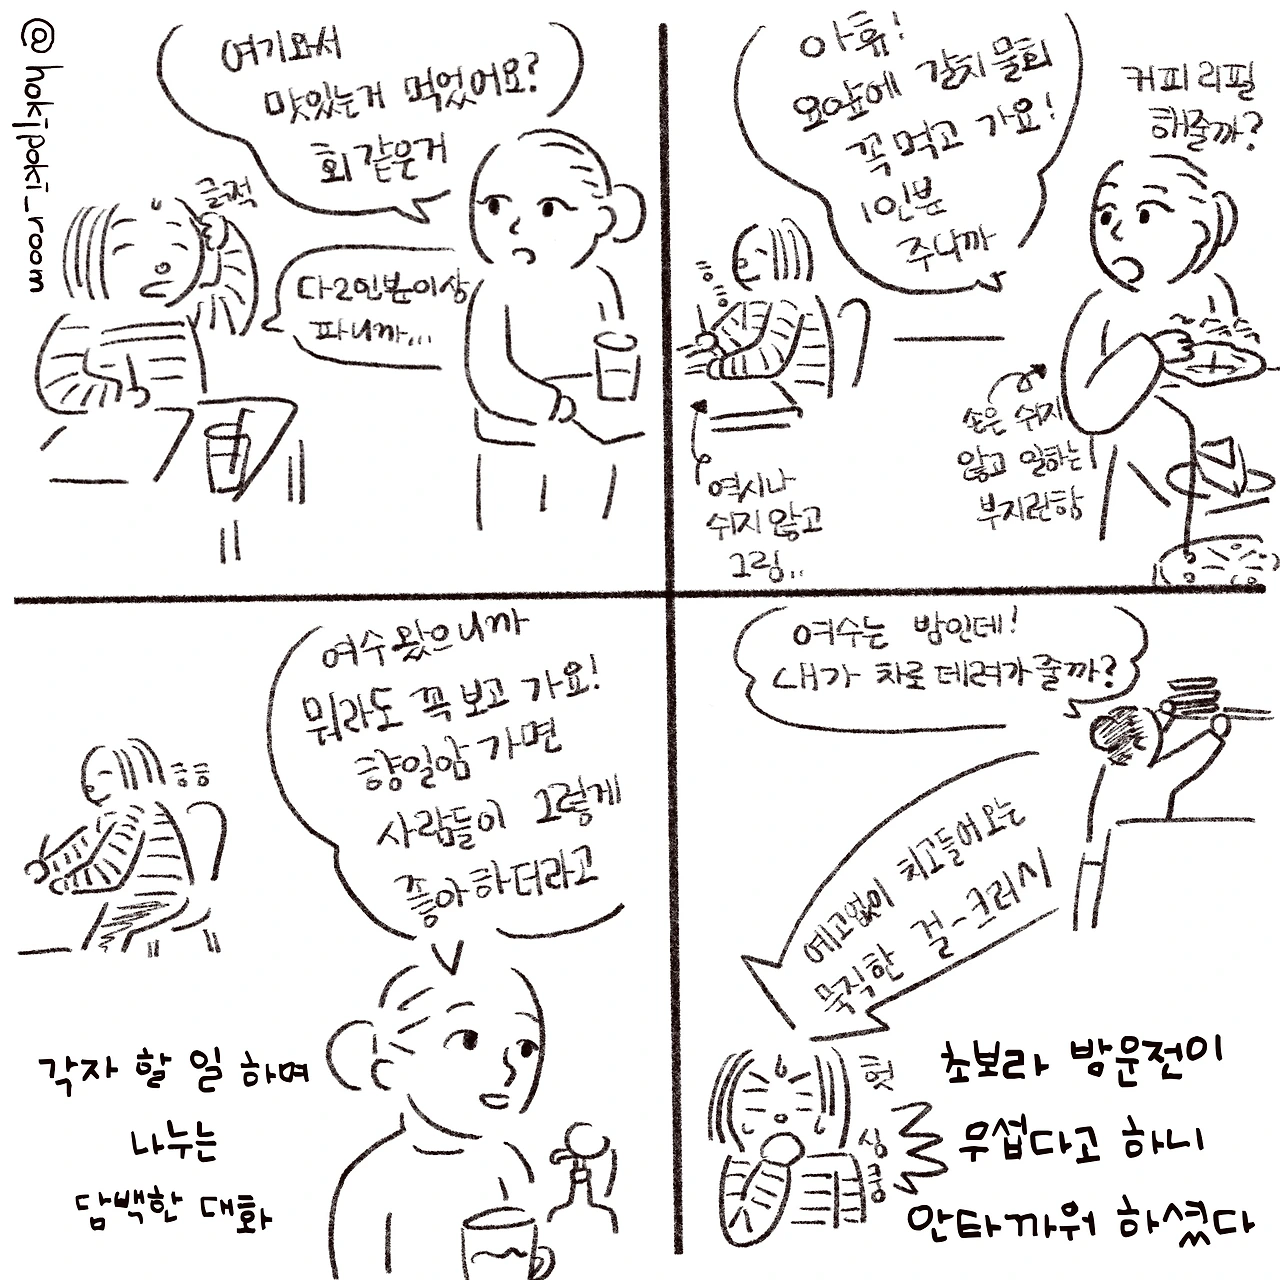 @hokipoki_room
여기와서
맛있는거 먹었어요?
회 같은거
긁적
다 2인분이상
파니까...
아휴!
요앞에 갈치물회
꼭 먹고 가요!
1인분
주니까
커피 리필
해줄까?
슥슥
흥흥
손은 쉬지
않고 일하는
부지런함
역시나
쉬지 않고
그림..
여수 왔으니까
뭐라도 꼭 보고 가요!
향일암 가면
사람들이 그렇게
좋아하더라고
흥흥
각자 할 일 하며
나누는
담백한 대화
여수는 밤인데!
내가 차로 데려가줄까?
예고없이 치고들어오는
묵직한 걸-크러시
헛
심쿵
초보라 밤운전이
무섭다고 하니
안타까워 하셨다